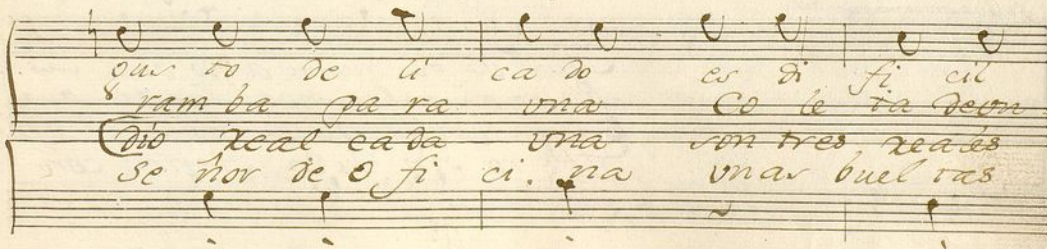 gus to de li ca do es di fi cil
8 ram ba pa ra una Co le ta de un
dio real cada una son tres reales
Se ñor de O fi ci. na unas buel tas